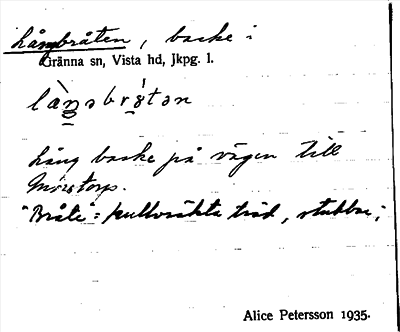 Långbråten, backe i
Gränna sn, Vista hd, Jkpg. l.
lång backe på vägen till
"Bråte" = kullvräkta träd, stubbar;
Alice Petersson 1935.